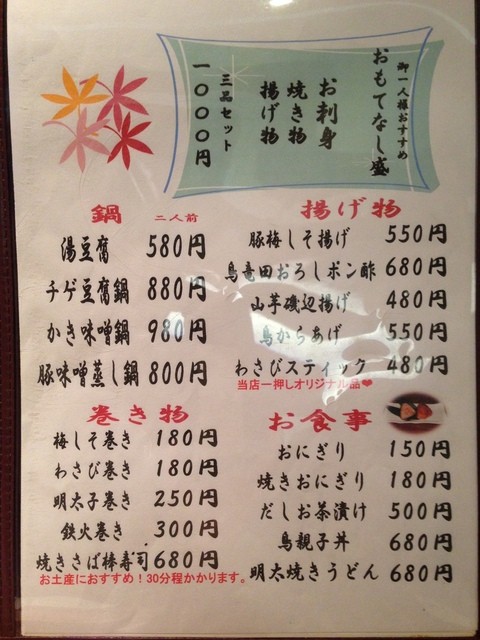 御一人様おすすめ
おもてなし盛
お刺身
焼き物
揚げ物
三品セット
一〇〇〇円
鍋 二人前
湯豆腐 580円
チゲ豆腐鍋 880円
かき味噌鍋 980円
豚味噌蒸し鍋 800円
揚げ物
豚梅しそ揚げ 550円
鳥竜田おろしポン酢 680円
山芋磯辺揚げ 480円
鳥からあげ 550円
わさびスティック 480円
当店一押しオリジナル品❤
巻き物
梅しそ巻き 180円
わさび巻き 180円
明太子巻き 250円
鉄火巻き 300円
焼きさば棒寿司 680円
お土産におすすめ！30分程かかります。
お食事
おにぎり 150円
焼きおにぎり 180円
だしお茶漬け 500円
鳥親子丼 680円
明太焼きうどん 680円